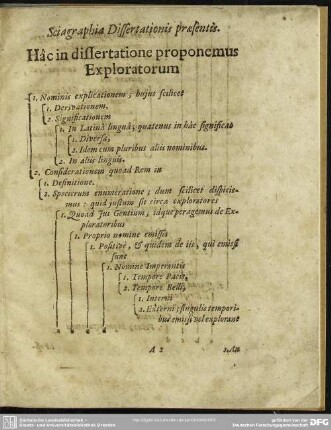 Sciagraphia Dissertationis præsentis.
Hâc in dissertatione proponemus
Exploratorum
1. Nominis explicationem; hujus scilicet
1. Derivationem,
2. Significationem
1. In Latinâ linguâ; quatenus in hâc significat
1. Diversa,
2. Idem cum pluribus aliis nominibus.
2. In aliis linguis.
2. Considerationem quoad Rem in
1. Definitione.
2. Specierum enumeratione; dum scilicet dispicie-
mus: quid justum sit circa exploratores
1. Quoad Jus Gentium, idque peragemus de Ex-
ploratoribus
1. Proprio nomine emissis
1. Positivè, & quidem de iis, qui emissi
sunt
1. Nomine Imperantis
1. Tempore Pacis,
2. Tempore Belli,
1. Interni
2. Externi; singulis tempori-
bus emissi vel explorant
A 2